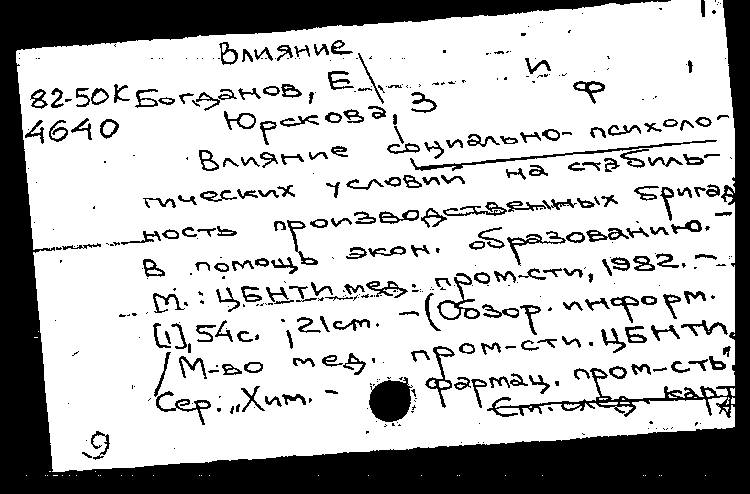 Влияние
82-50К Богданов, Е И
4640 Юрскова, З Ф
Влияние социально-психоло-
гических условий на стабиль-
ность производственных бригад
В помощь экон. образованию. -
М.: ЦБНТИ мед. пром-сти, 1982. -
[1], 54с. ; 21см. - (Обзор. информ.
/ М-во мед. пром-сти. ЦБНТИ.
Сер.: „Хим. - фармац. пром-сть"
См. след. карт
9